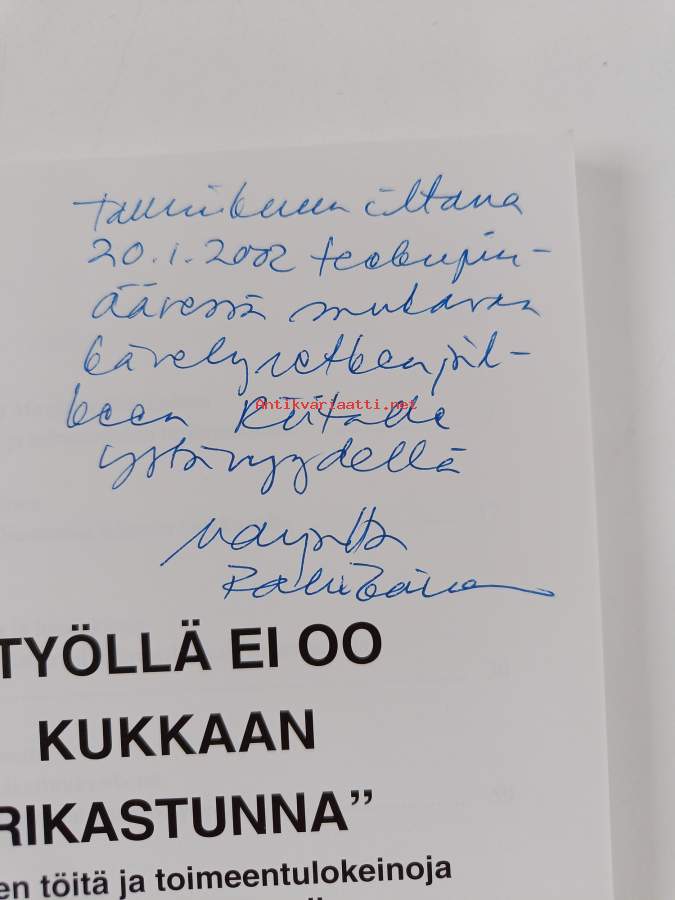 Tammikuun iltana
20.1.2002 teekupin-
ääressä mukavan
kävelyretken jäl-
keen Riitalle
ystävyydellä
Marjatta
Antikvariaatti.net
TYÖLLÄ EI OO
KUKKAAN
RIKASTUNNA”
en töitä ja toimeentulokeinoja